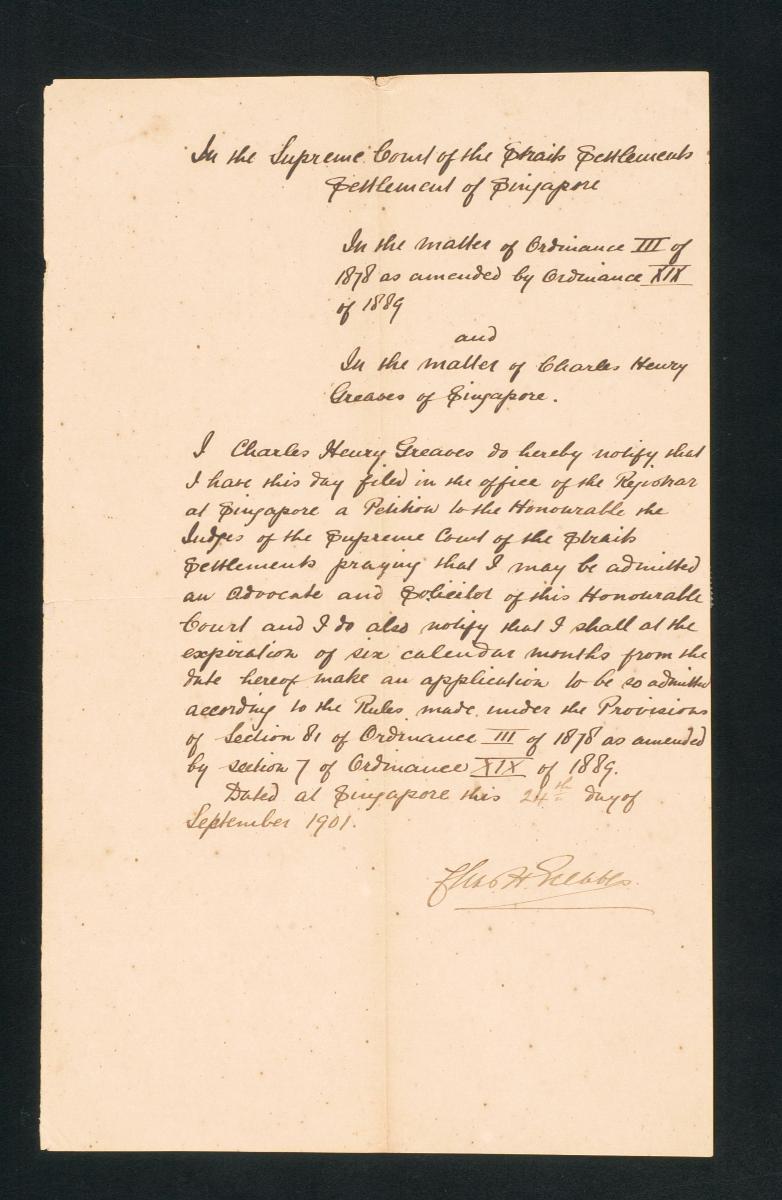 In the Supreme Court of the Straits Settlements
Settlement of Singapore
In the matter of Ordinance III of
1878 as amended by Ordinance XIX
of 1889
and
In the matter of Charles Henry
Greaves of Singapore.
I Charles Henry Greaves do hereby notify that
I have this day filed in the office of the Registrar
at Singapore a Petition to the Honourable the
Judges of the Supreme Court of the Straits
Settlements praying that I may be admitted
an Advocate and Solicitor of this Honourable
Court and I do also notify that I shall at the
expiration of six calendar months from the
date hereof make an application to be so admitted
according to the Rules made under the Provisions
of Section 81 of Ordinance III of 1878 as amended
by section 7 of Ordinance XIX of 1889.
Dated at Singapore this 24th day of
September 1901.
Chas H. Greaves.